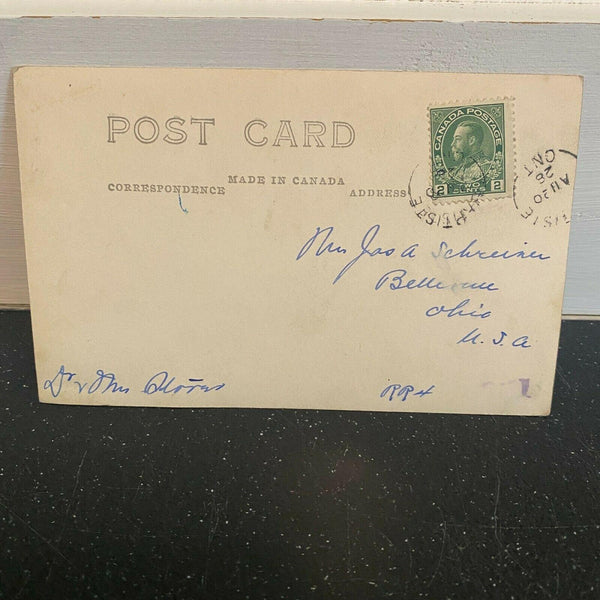 POST CARD
MADE IN CANADA
CORRESPONDENCE
ADDRESS
CANADA POSTAGE
2 TWO CENTS 2
AU 20
26
ONT
Mrs Jas A Schreiner
Bellevue
Ohio
U.S.A.
Dr & Mrs
RR4
1